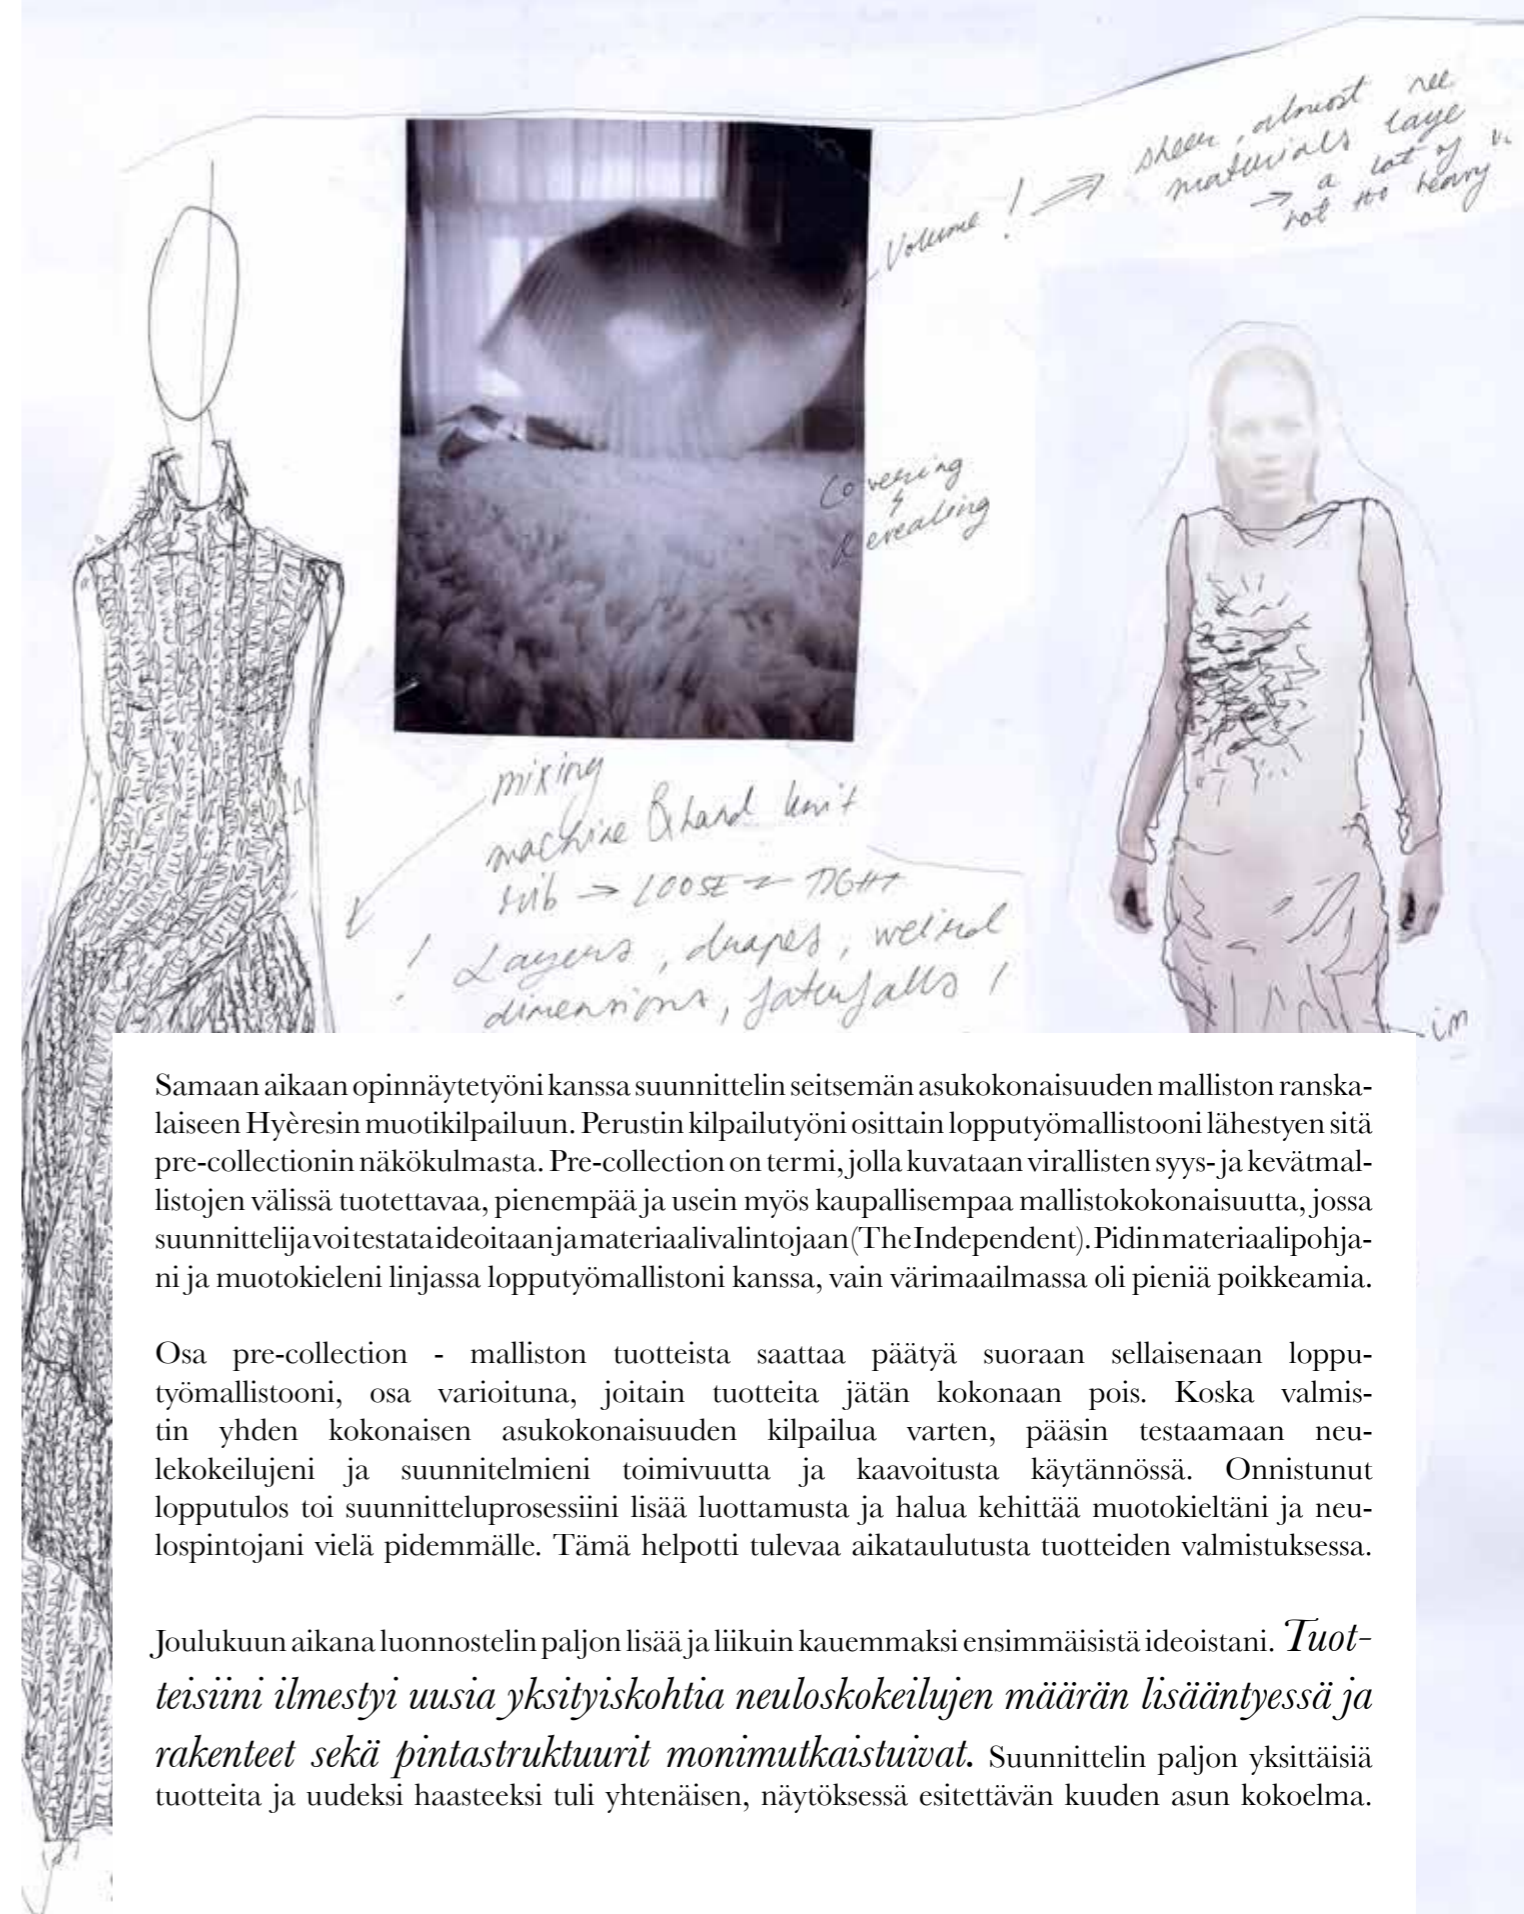 sheer, almost
materials laye
→ a lot of
not too heavy
Volume ! ⇒
Covering
&
Revealing
mixing
machine & hand knit
rib → LOOSE ⇄ TIGHT
! Layers, drapes, weird
dimensions, !
im
Samaan aikaan opinnäytetyöni kanssa suunnittelin seitsemän asukokonaisuuden malliston ranska-
laiseen Hyèresin muotikilpailuun. Perustin kilpailutyöni osittain lopputyömallistooni lähestyen sitä
pre-collectionin näkökulmasta. Pre-collection on termi, jolla kuvataan virallisten syys- ja kevätmal-
listojen välissä tuotettavaa, pienempää ja usein myös kaupallisempaa mallistokokonaisuutta, jossa
suunnittelija voi testata ideoitaan ja materiaalivalintojaan (The Independent). Pidin materiaalipohja-
ni ja muotokieleni linjassa lopputyömallistoni kanssa, vain värimaailmassa oli pieniä poikkeamia.
Osa pre-collection - malliston tuotteista saattaa päätyä suoraan sellaisenaan loppu-
työmallistooni, osa varioituna, joitain tuotteita jätän kokonaan pois. Koska valmis-
tin yhden kokonaisen asukokonaisuuden kilpailua varten, pääsin testaamaan neu-
lekokeilujeni ja suunnitelmieni toimivuutta ja kaavoitusta käytännössä. Onnistunut
lopputulos toi suunnitteluprosessiini lisää luottamusta ja halua kehittää muotokieltäni ja neu-
lospintojani vielä pidemmälle. Tämä helpotti tulevaa aikataulutusta tuotteiden valmistuksessa.
Joulukuun aikana luonnostelin paljon lisää ja liikuin kauemmaksi ensimmäisistä ideoistani. Tuot-
teisiini ilmestyi uusia yksityiskohtia neuloskokeilujen määrän lisääntyessä ja
rakenteet sekä pintastruktuurit monimutkaistuivat. Suunnittelin paljon yksittäisiä
tuotteita ja uudeksi haasteeksi tuli yhtenäisen, näytöksessä esitettävän kuuden asun kokoelma.